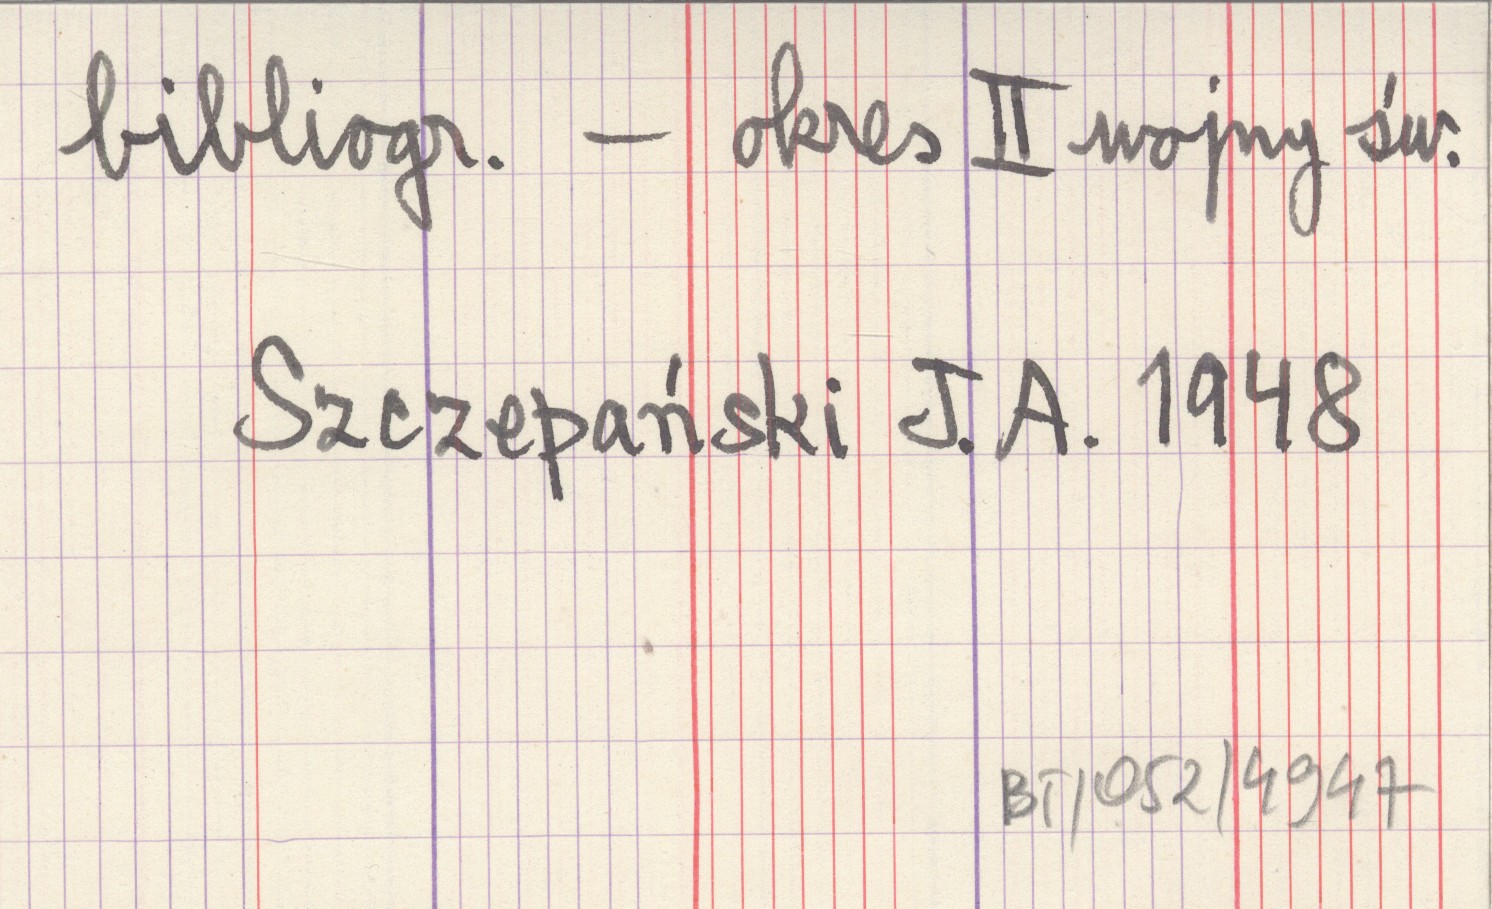 bibliogr. — okres II wojny św.
Szczepański J.A. 1948
BT/052/4947